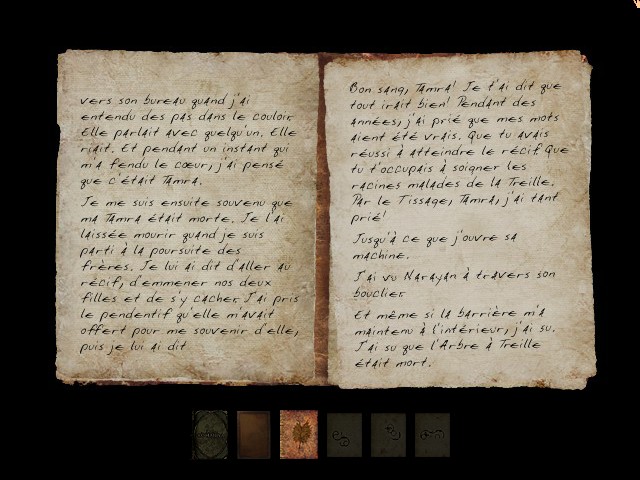 vers son bureau quand j'ai
entendu des pas dans le couloir.
Elle parlait avec quelqu'un. Elle
riait. Et pendant un instant qui
m'a fendu le cœur, j'ai pensé
que c'était Tamra.
Je me suis ensuite souvenu que
ma Tamra était morte. Je l'ai
laissée mourir quand je suis
parti à la poursuite des
frères. Je lui ai dit d'aller au
récif, d'emmener nos deux
filles et de s'y cacher. J'ai pris
le pendentif qu'elle m'avait
offert pour me souvenir d'elle,
puis je lui ai dit
Bon sang, Tamra! Je t'ai dit que
tout irait bien! Pendant des
années, j'ai prié que mes mots
aient été vrais. Que tu avais
réussi à atteindre le récif. Que
tu t'occupais à soigner les
racines malades de la Treille.
Par le Tissage, Tamra, j'ai tant
prié!
Jusqu'à ce que j'ouvre sa
machine.
J'ai vu Narayan à travers son
bouclier.
Et même si la barrière m'a
maintenu à l'intérieur, j'ai su.
J'ai su que l'Arbre à Treille
était mort.